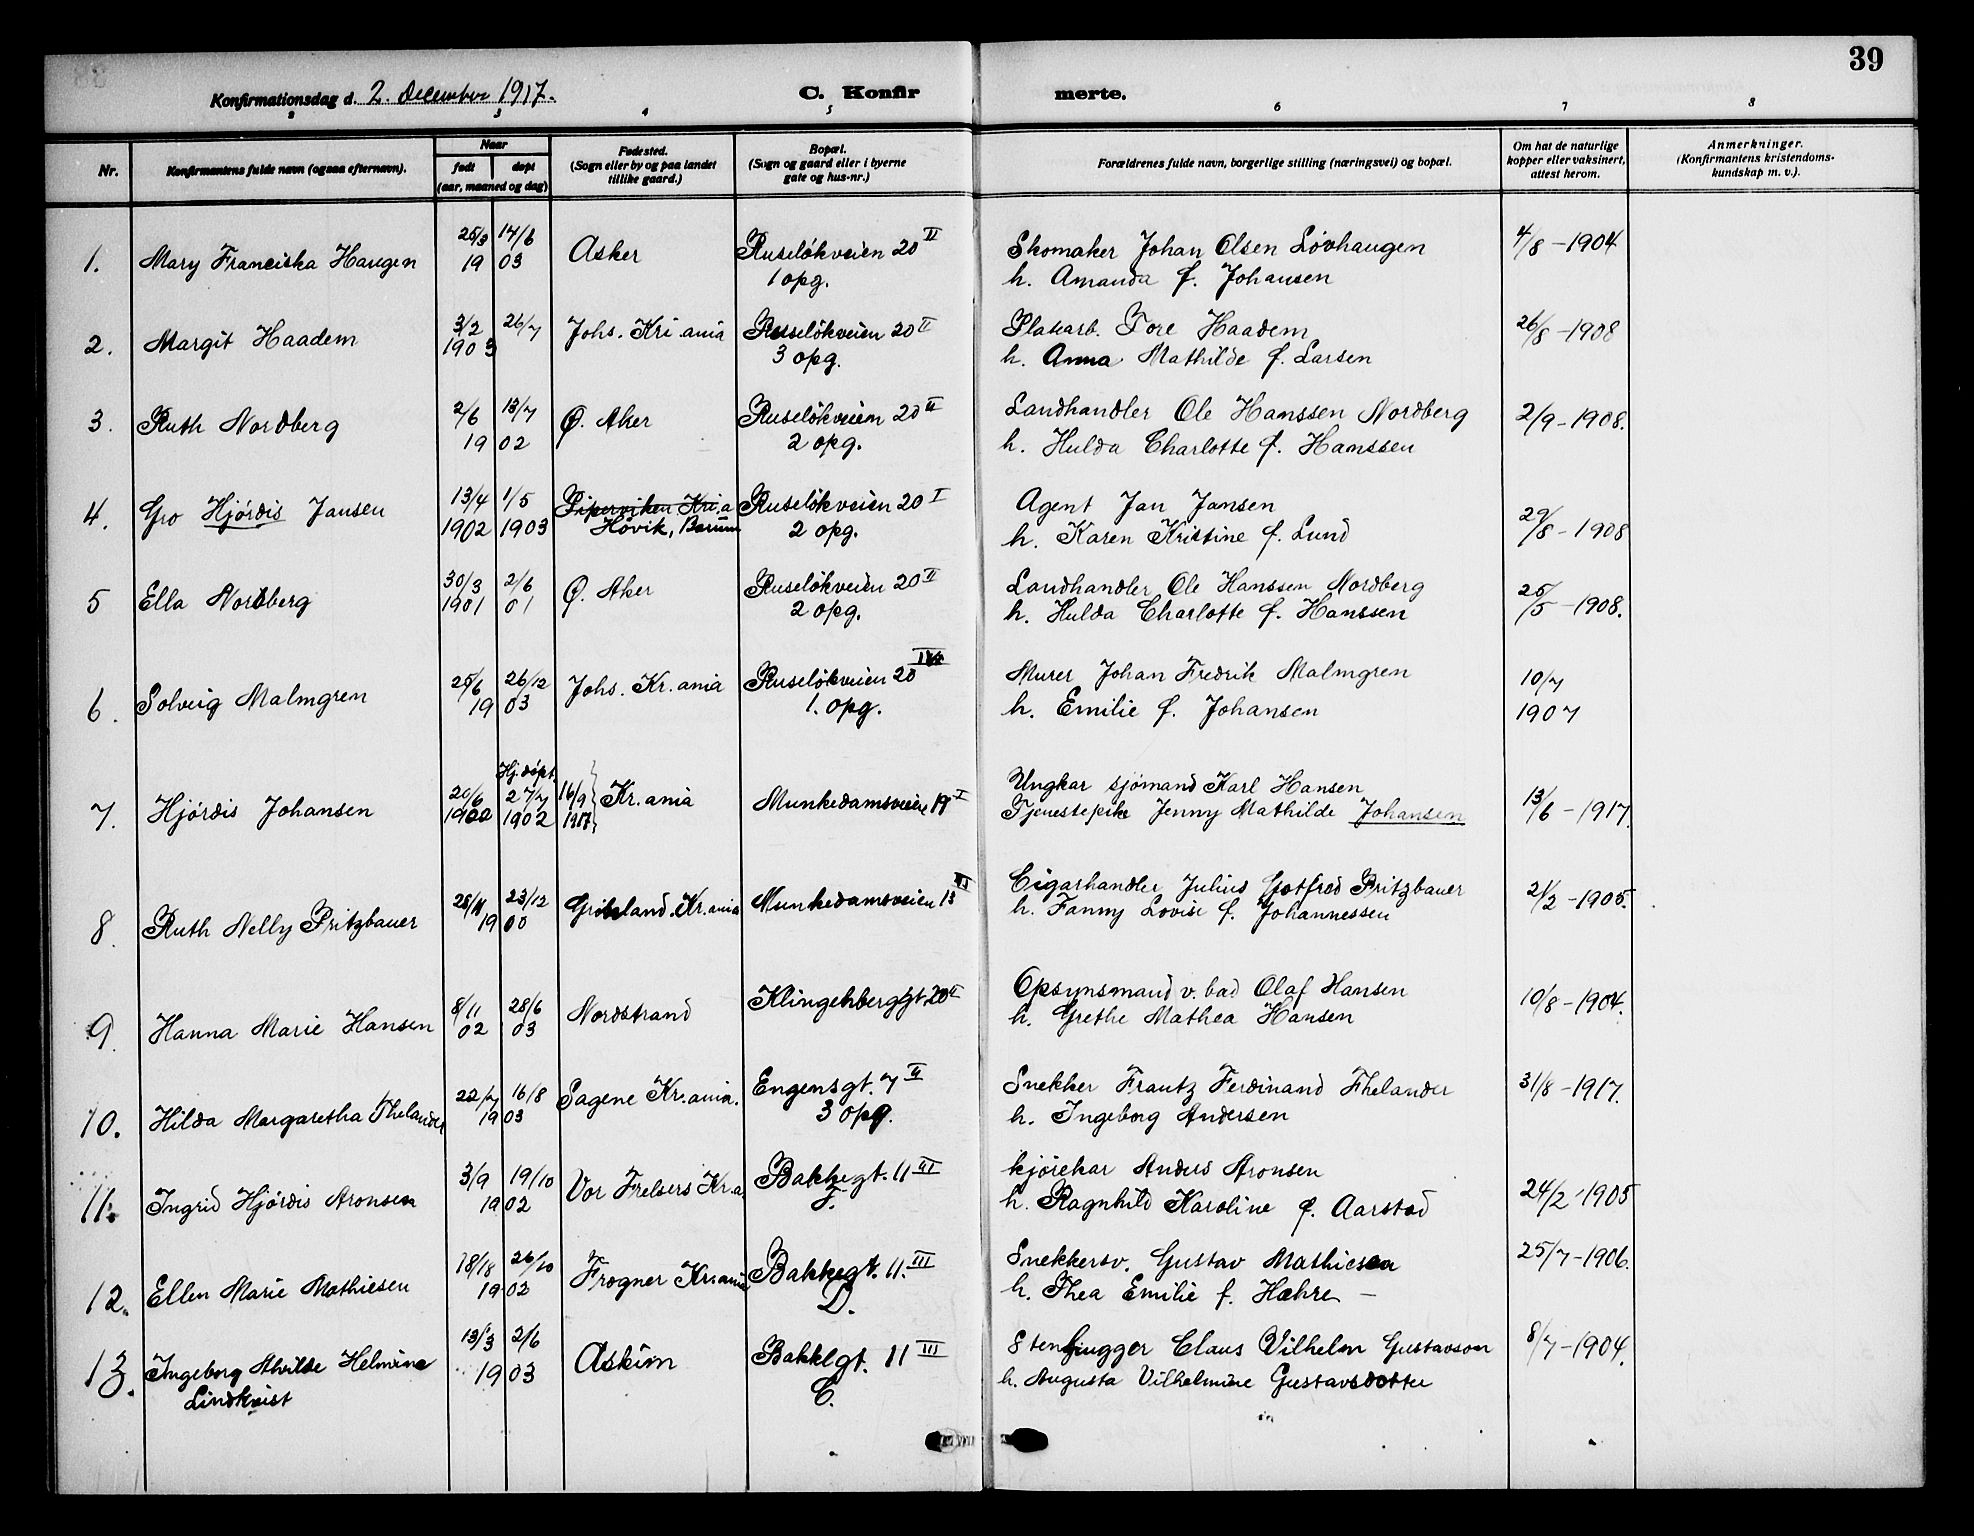 39
Konfirmationsdag d. 2. december 1917.
C. Konfir merte.
2 3 4 5 6 7 8
Nr.
Konfirmantens fulde navn (ogsaa efternavn).
Naar
født
døpt
(aar, maaned og dag)
Fødested.
(Sogn eller by og paa landet
tillike gaard.)
Bopæl.
(Sogn og gaard eller i byerne
gate og hus-nr.)
Forældrenes fulde navn, borgerlige stilling (næringsvei) og bopæl.
Om hat de naturlige
kopper eller vaksinert,
attest herom.
Anmerkninger.
(Konfirmantens kristendoms-
kundskap m. v.).
1. Mary Franciska Haugen 25/3 14/6 Asker Ruseløkveien 20 II Skomaker Johan Olsen Løvhaugen 4/8 - 1904
19 03 1 opg. h. Amanda f. Johansen
2. Margit Haadem 3/2 26/7 Johs. Kri.ania Ruseløkveien 20 II Platearb. Tore Haadem 26/8 - 1908
1903 3 opg. h. Anna Mathilde f. Larsen
3. Ruth Nordberg 2/6 13/7 Ø. Aker Ruseløkveien 20 II Landhandler Ole Hanssen Nordberg 2/9 - 1908.
19 02 2 opg. h. Hulda Charlotte f. Hanssen
4. Gro Hjórdis Jansen 13/4 1/5 Piperviken Kri.a Ruseløkveien 20 I Agent Jan Jansen 29/8 - 1908
1902 1903 Høvik, Bærum 2 opg. h. Karen Kristine f. Lund
5 Ella Nordberg 30/3 2/6 Ø. Aker Ruseløkveien 20 II Landhandler Ole Hanssen Nordberg 25/5 - 1908.
1901 01 2 opg. h. Hulda Charlotte f. Hanssen
6. Solveig Malmgren 25/6 26/12 Johs. Kr.ania Ruseløkveien 20 Murer Johan Fredrik Malmgren 10/7
19 03 1. opg. h. Emilie f. Johansen 1907
Hj. døpt
7. Hjórdis Johansen 20/6 27/7 16/9 Kr.ania Munkedamsveien 19 I Ungkar sjømand Karl Hansen 13/6 - 1917.
1902 1902 1917 Tjenestepike Jenny Mathilde Johansen
8. Ruth Nelly Pritzbauer 25/11 23/12 Grønland Kr.ania Munkedamsveien 13 Cigarhandler Julius Gotfred Pritzbauer 21/2 - 1905.
19 00 h. Fanny Lovise f. Johannessen
9. Hanna Marie Hansen 8/11 28/6 Nordstrand Klingenberggt. 20 II Opsynsmand v. bad Olaf Hansen 10/8 - 1904.
02 03 h. Grethe Mathea Hansen
10. Hilda Margaretha Thelander 22/7 16/8 Sagene Kr.ania. Engensgt. 7 II Snekker Frantz Ferdinand Thelander 31/8 - 1917.
19 03 3 opg. h. Ingeborg Andersen
11. Ingrid Hjórdis Aronsen 3/9 19/10 Vor Frelsers Kr.a Bakkegt. 11 III kjørekar Anders Aronsen 24/2 - 1905
19 02 F. h. Ragnhild Karoline f. Aarstad
12. Ellen Marie Mathiesen 18/18 26/10 Frogner Kr.ania Bakkegt. 11. III Snekkersv. Gustav Mathiesen 25/7 - 1906.
19 02 D. h. Thea Emilie f. Hæhre -
13. Ingeborg Alvilde Helmine 13/3 2/6 Askim Bakkegt. 11 III Stenhugger Claus Vilhelm Gustavson 8/7 - 1904.
Lindkvist 19 03 C. h. Augusta Vilhelmine Gustavsdotter